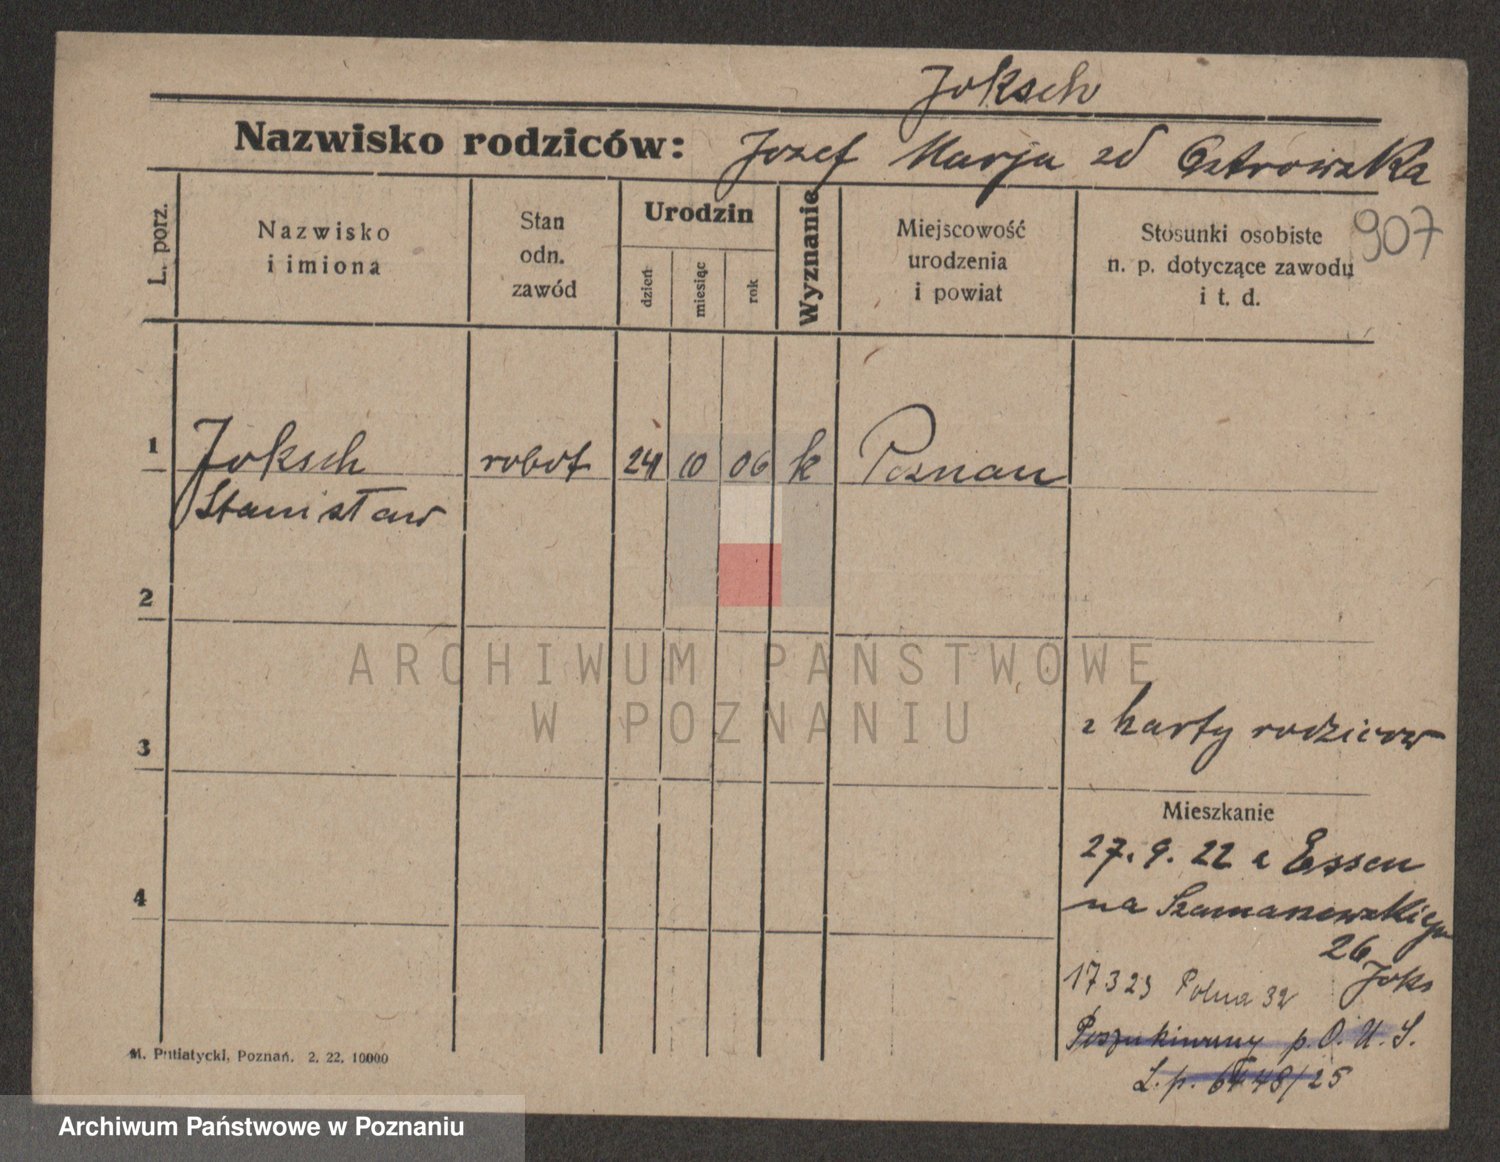 Joksch
Nazwisko rodziców: Jozef Marja zd Ostrowska
907
L. porz.
Nazwisko
i imiona
Stan
odn.
zawód
Urodzin
dzień
miesiąc
rok
Wyznanie
Miejscowość
urodzenia
i powiat
Stosunki osobiste
n. p. dotyczące zawodu
i t. d.
1 Joksch robot 24 10 06 k Poznan
Stanisław
2
ARCHIWUM PAŃSTWOWE
W POZNANIU
z karty rodzicow
3
Mieszkanie
27. 9. 22 z Essen
na
4
26
Joks
17 3 23 Polna 32
Poszukiwany p. O. U. S.
L. p. 6448/25
M. Putiatycki, Poznań. 2. 22. 10000
Archiwum Państwowe w Poznaniu